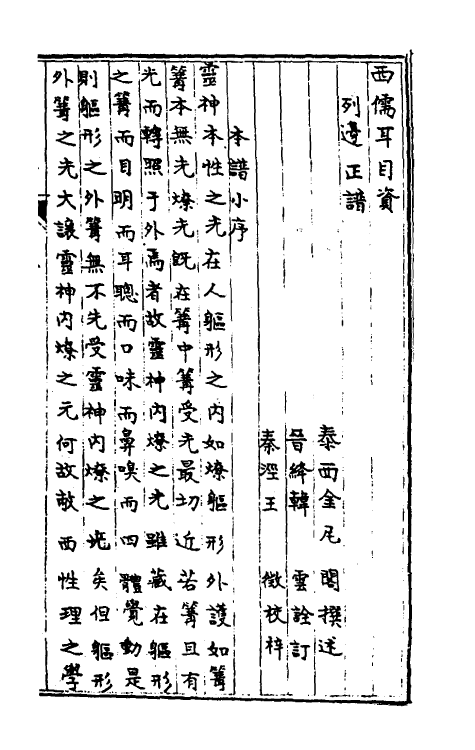 西儒耳目資
列邊正譜
泰西金尼閣撰述
晉絳韓雲詮訂
秦涇王徵校梓
本譜小序
靈神本性之光在人軀形之內如燎軀形外護如篝
篝本無光燎光既在篝中篝受光最切近若篝且有
光而轉照于外焉者故靈神內燎之光雖藏在軀形
之篝而目明而耳聰而口味而鼻嗅而四體覺動是
則軀形之外篝無不光受靈神內燎之光矣但軀形
外篝之光大讓靈神內燎之元何故敝西性理之學